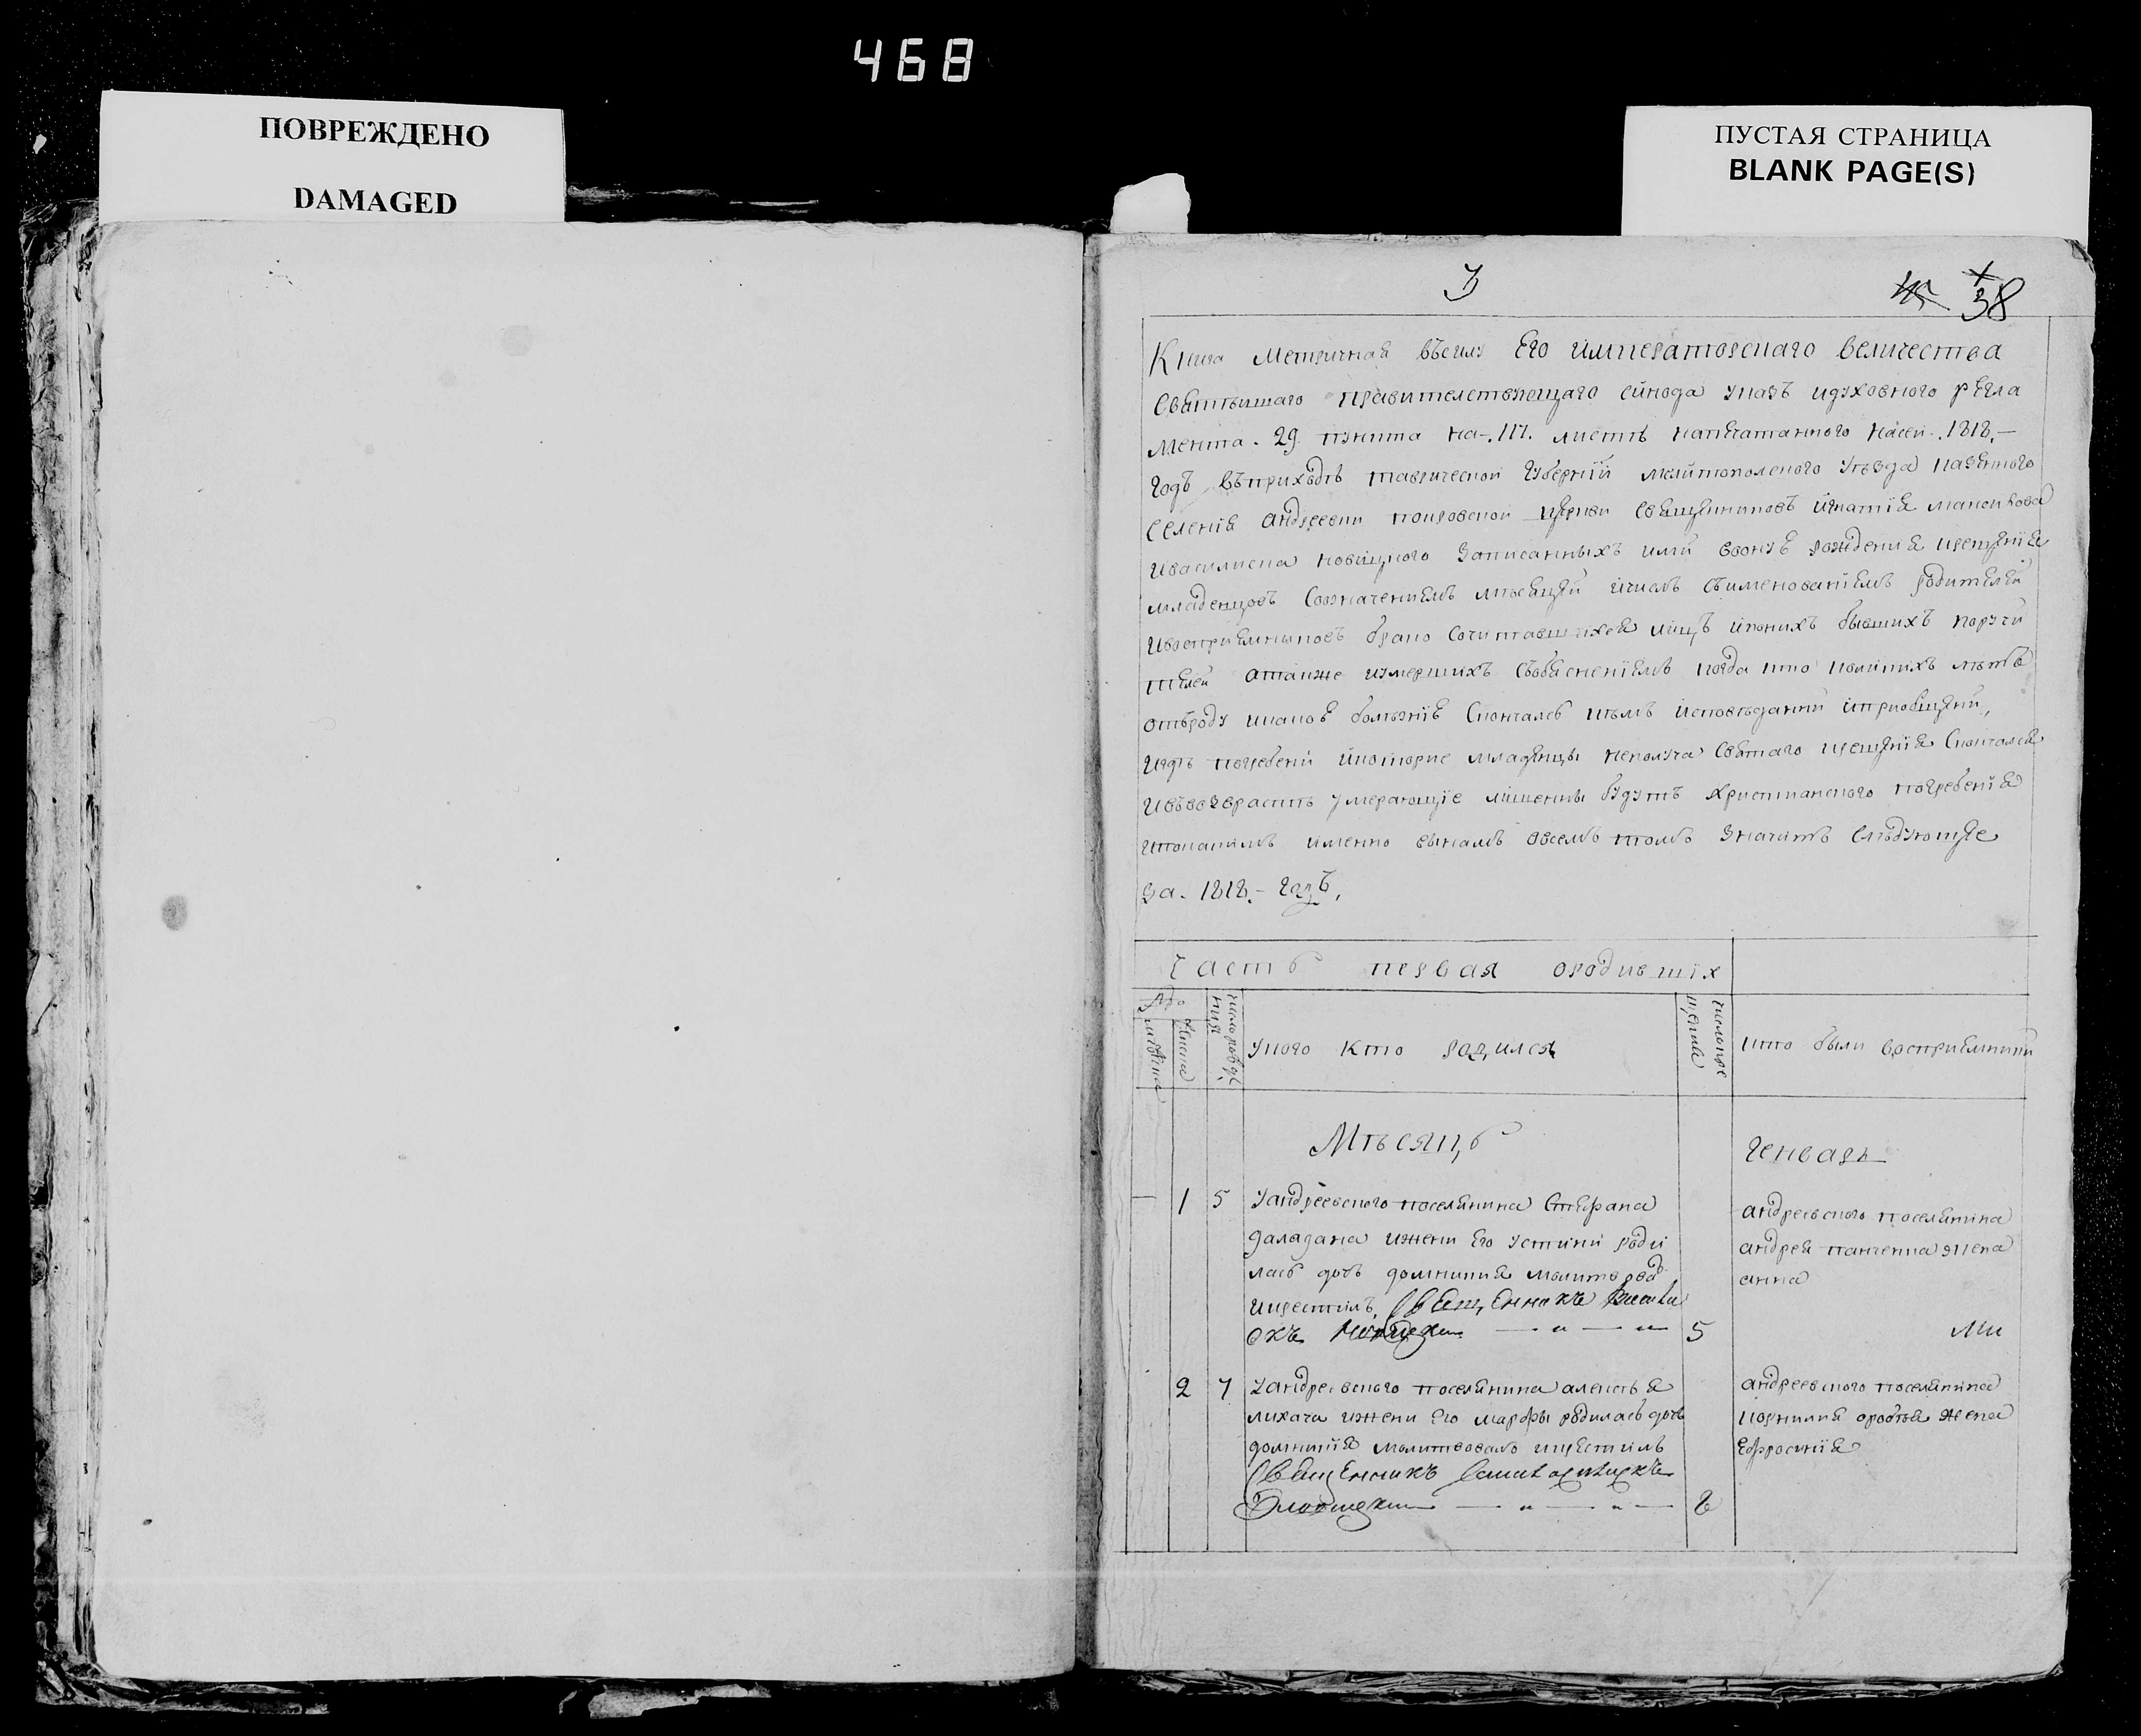 468
ПОВРЕЖДЕНО
DAMAGED
ПУСТАЯ СТРАНИЦА
BLANK PAGE(S)
38
Книга Метричная въсилу Его императорскаго величества
Святѣйшаго правителствующаго сѵнода указъ идуховного регла
мента. 29. пункта на-. 117. листѣ напечатанного насей.. 1818.-
годъ въприходѣ таврической губернїй мелитополского уѣзда казенного
селенїя андреевки покровской церкви священниковъ игнатїя
ивасилиска новицкого записанныхъ ими воонуе рожденїя икрещенїя
младенцовъ Соозначениемъ мѣсяцей ичиселъ съименованїемъ родителей
ивосприемниковъ брако сочитавшихся лицъ ипонихъ бывшихъ поручи
телей атакже измершихъ собявленїемъ когда кто коликихъ лѣтъ
отъроду икакое болезнїе Скончалсь икѣмъ исповѣданни иприобщени,
игдѣ погребени икоторие младенцы неполуча Святаго крещенїя Скончалися
ивъвозврастѣ умерающїе лишенны будутъ християнского погребенїя
именно овсемъ томъ значитъ слѣдующее
за. 1818.- годъ,
Часть первая ородившїх
число рожде
ния
укого кто родился
число кре
щения
кто были восприемники
Мѣсяцъ
Генварь
1 5 Уандреевского поселянина Стефана
жени его устини роди
лась дочь домникия молитвовал
икрестилъ Священникъ Васили
скъ Новицкий 5
андреевского поселянина
андрея панченка жена
анна
2 7 Уандреевского поселянина алексѣя
лихача ижени его марфы родилась дочь
домникия молитвовалъ икрестилъ
Священникъ
8
андреевского поселянина
корнилия жена
ефросинїя